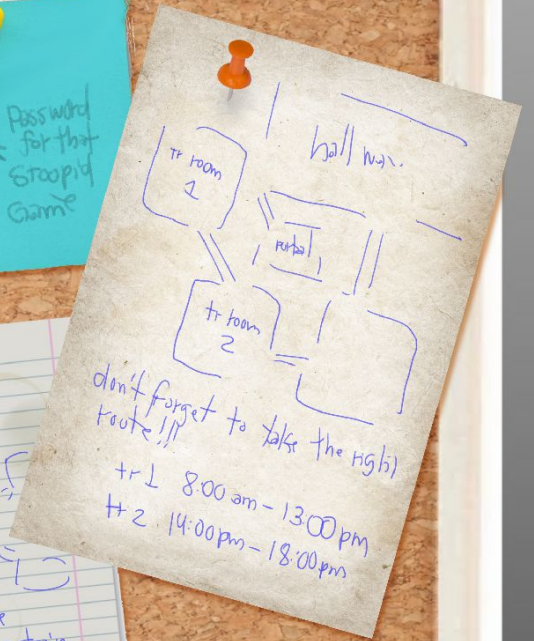 Password
for that
stoopid
Game
hall
tr room
1
tr room
2
don't forget to take the right
route!!!
tr 1 8:00 am - 13:00 pm
tr 2 14:00 pm - 18:00 pm